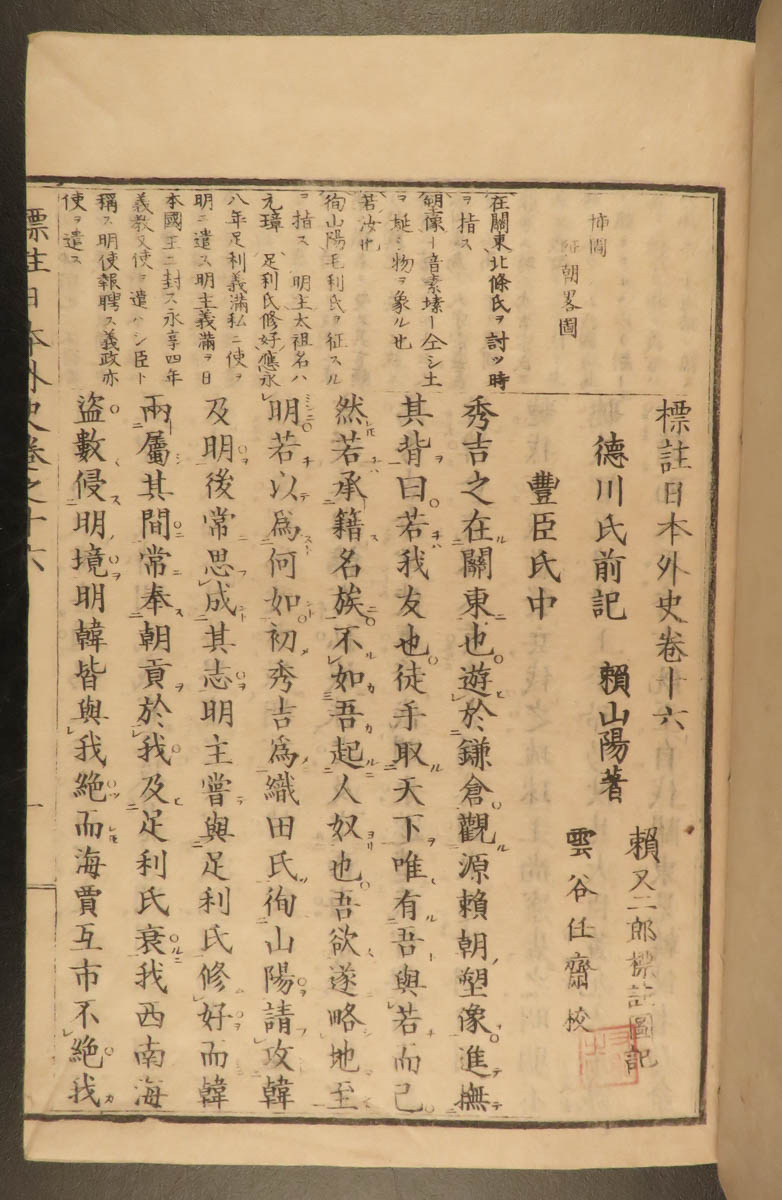 標註日本外史卷十六
賴又二郎標註圖記
德川氏前記　賴山陽著
雲谷任齋校
豐臣氏中
秀吉之在關東也遊於鎌倉觀源賴朝塑像進撫
其背曰若我友也徒手取天下唯有吾與若而已
然若承籍名族不如吾起人奴也吾欲遂略地至
明若以爲何如初秀吉爲織田氏徇山陽請攻韓
及明後常思成其志明主嘗與足利氏修好而韓
兩屬其間常奉朝貢於我及足利氏衰我西南海
盜數侵明境明韓皆與我絶而海賈互市不絶我
挿圖
朝畧圖
在關東北條氏ヲ討ツ時
ヲ指ス
塑像ー音素塐ー仝シ土
ヲ埏シ物ヲ象ル也
若汝也
徇山陽毛利氏ヲ征スル
ヲ指ス　明主太祖名ハ
元璋　足利氏修好應永
八年足利義滿私ニ使ヲ
明ニ遣ス明主義滿ヲ日
本國王ニ封ス永享四年
義教又使ヲ遣ハシ臣ト
稱ス明使報聘ス義政亦
使ヲ遣ス
標註日本外史卷之十六
一